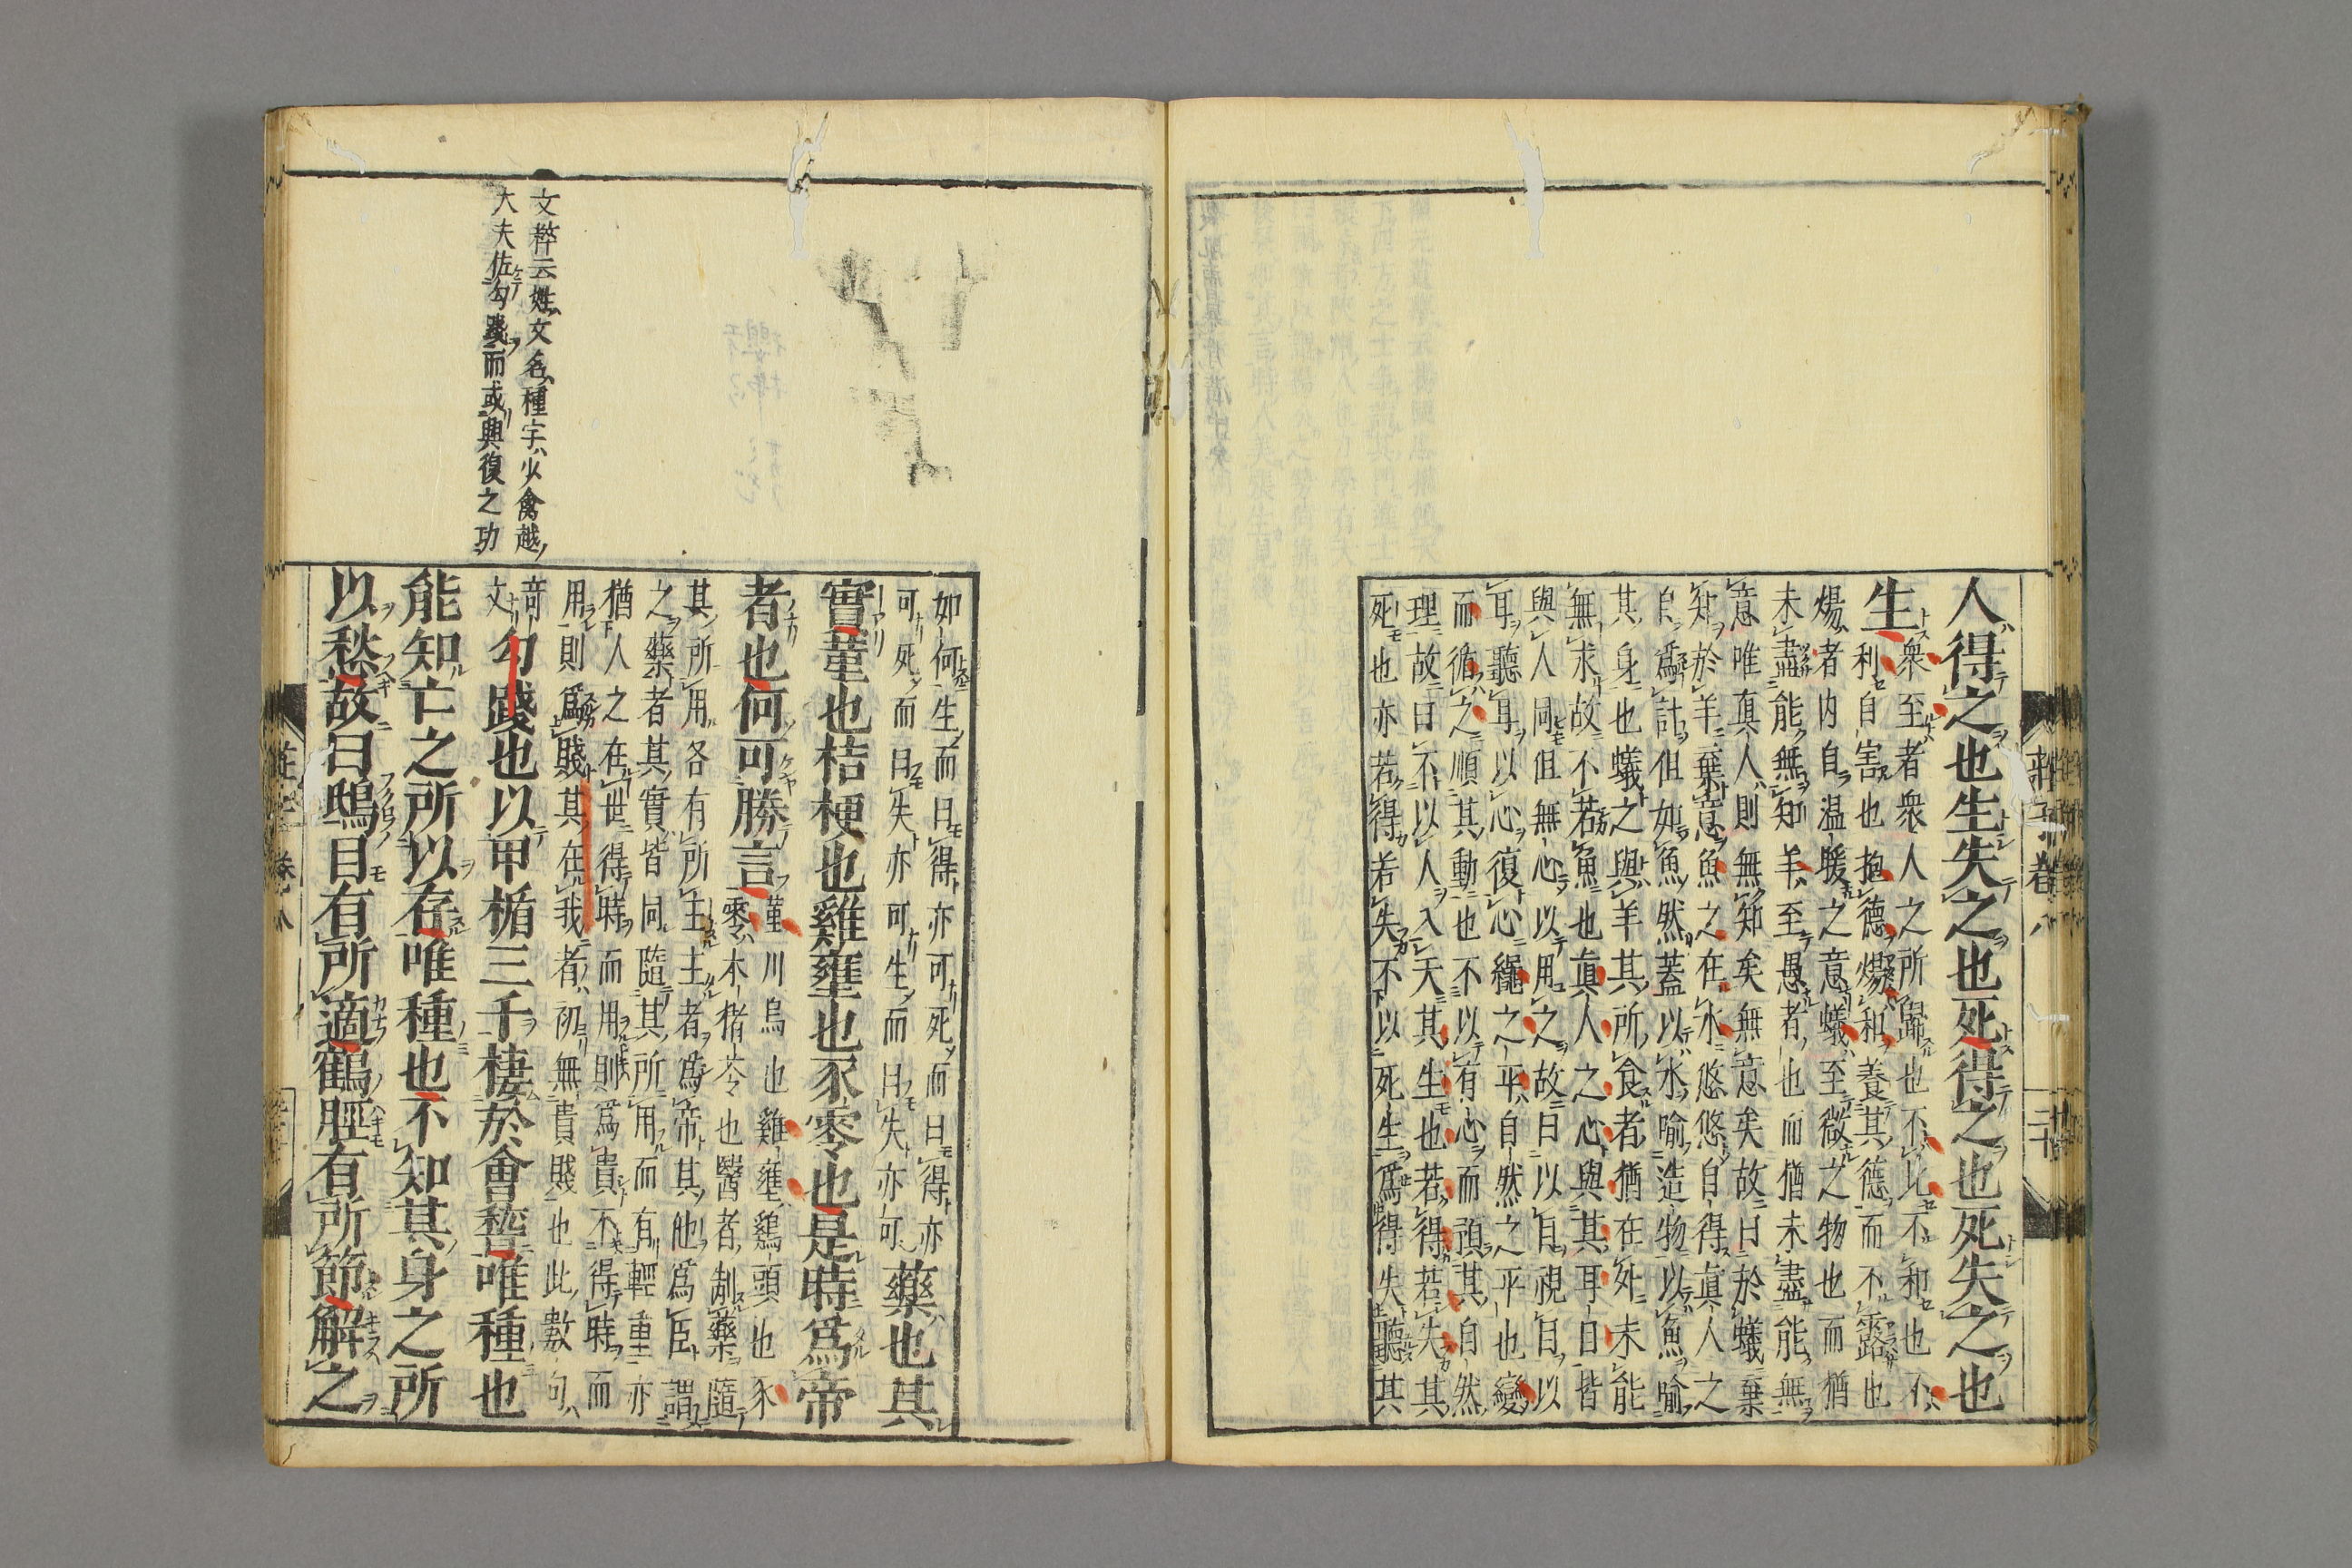 人得之也生失之也死得之也死失之也
生衆至者衆人之所歸也不比不和也不
利自害也抱德煬和養其德而不露也
煬者内自温暖之意蟻至微之物也而猶
未盡能無知羊至愚者也而猶未盡能無
意唯眞人則無知矣無意矣故曰於蟻棄
知於羊棄意魚之在水悠悠自得眞人之
自爲計但如魚然蓋以水喻造物以魚喻
其身也蟻之與羊其所食者猶在外未能
無求故不若魚也眞人之心與其耳目皆
與人同但無心以用之故曰以目視目以
耳聽耳以心復心繩之平自然之平也變
而循之順其動也不以有心而預其自然
理故曰不以人入天其生也若得若失其
死也亦若得若失不以死生爲得失聽其
如何生而曰得亦可死而曰得亦
可死而曰失亦可生而曰失亦可藥也其
實菫也桔梗也雞壅也豕零也是時爲帝
者也何可勝言菫川烏也雞壅鷄頭也豕
零木猪苓也醫者制藥隨
其所用各有所主主者爲帝其他爲臣謂
之藥者其實皆同隨其所用而有輕重亦
猶人之在世得時而用則爲貴不得時而
用則爲賤其在我者初無貴賤也此數句
奇文勾踐也以甲楯三千棲於會稽唯種也
能知亡之所以存唯種也不知其身之所
以愁故曰鴟目有所適鶴脛有所節解之
文粹云姓文名種字少禽越
大夫佐勾踐而或興復之功
莊子 卷八